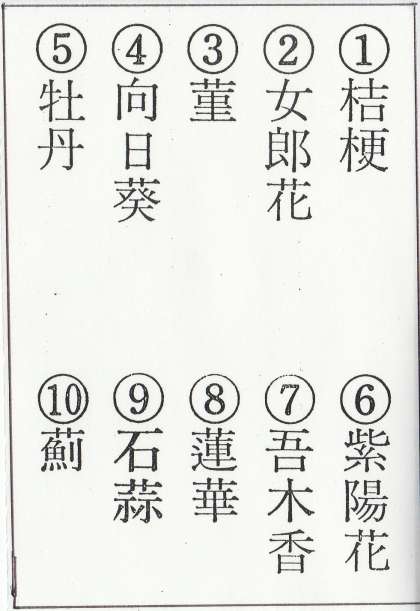 ①桔梗
②女郎花
③菫
④向日葵
⑤牡丹
⑥紫陽花
⑦吾木香
⑧蓮華
⑨石蒜
⑩薊